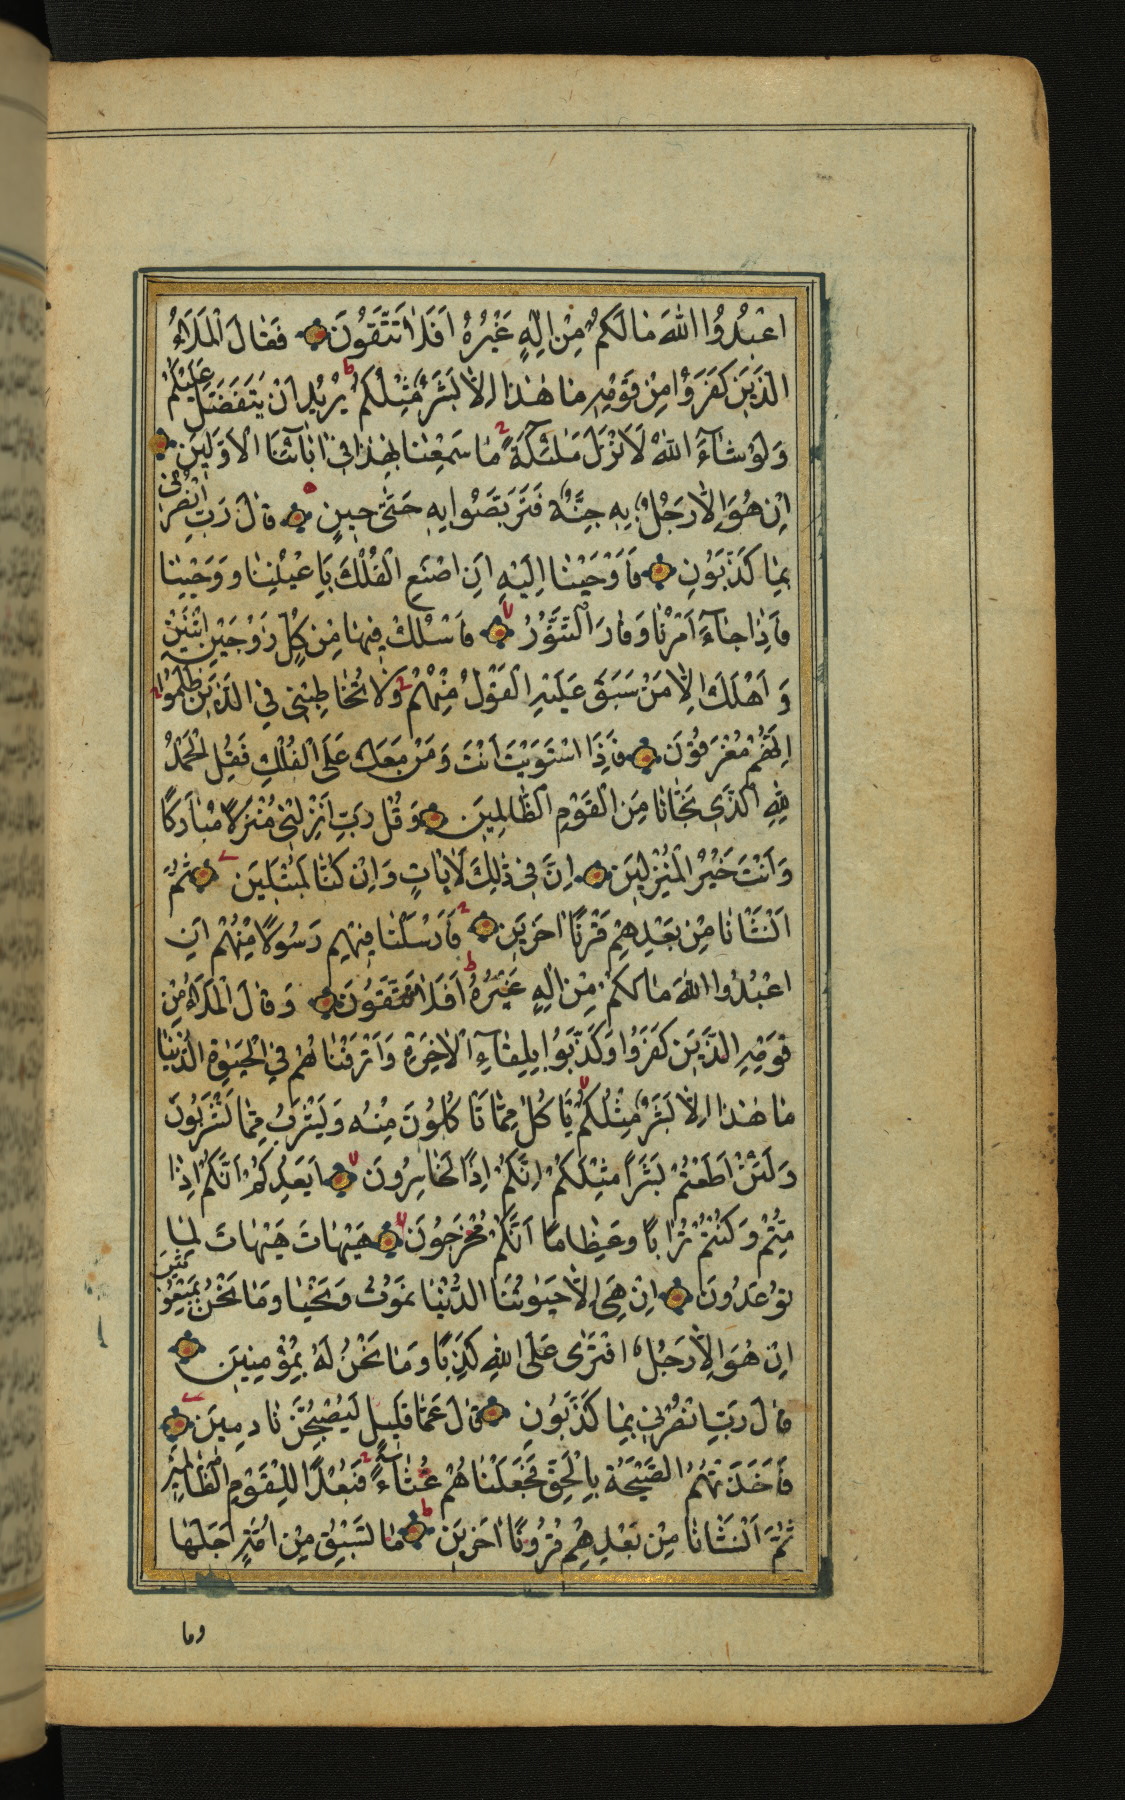 اعْبُدُوا اللّٰهَ مٰا لَكُمْ مِنْ اِلٰهٍ غَيْرُهُ اَفَلٰا تَتَّقُونَ فَقٰالَ الْمَلَاءُ
الَّذِينَ كَفَرُوا مِنْ قَوْمِهِ مٰا هٰذٰا اِلّٰا بَشَرٌ مِثْلُكُمْ يُرِيدُ اَنْ يَتَفَضَّلَ عَلَيْكُمْ
وَلَوْ شٰاءَ اللّٰهُ لَاَنْزَلَ مَلٰئِكَةً مٰا سَمِعْنٰا بِهٰذٰا فِي اٰبٰائِنَا الْاَوَّلِينَ
اِنْ هُوَ اِلّٰا رَجُلٌ بِهِ جِنَّةٌ فَتَرَبَّصُوا بِهِ حَتّٰى حِينٍ قٰالَ رَبِّ انْصُرْنِي
بِمٰا كَذَّبُونِ فَاَوْحَيْنٰا اِلَيْهِ اَنِ اصْنَعِ الْفُلْكَ بِاَعْيُنِنٰا وَوَحْيِنٰا
فَاِذٰا جٰاءَ اَمْرُنٰا وَفٰارَ التَّنُّورُ فَاسْلُكْ فِيهٰا مِنْ كُلٍّ زَوْجَيْنِ اثْنَيْنِ
وَ اَهْلَكَ اِلّٰا مَنْ سَبَقَ عَلَيْهِ الْقَوْلُ مِنْهُمْ وَلٰا تُخٰاطِبْنِي فِي الَّذِينَ ظَلَمُوا
اِنَّهُمْ مُغْرَقُونَ فَاِذَا اسْتَوَيْتَ اَنْتَ وَمَنْ مَعَكَ عَلَى الْفُلْكِ فَقُلِ الْحَمْدُ
لِلّٰهِ الَّذِي نَجّٰانٰا مِنَ الْقَوْمِ الظّٰالِمِينَ وَقُلْ رَبِّ اَنْزِلْنِي مُنْزَلًا مُبٰارَكًا
وَاَنْتَ خَيْرُ الْمُنْزِلِينَ اِنَّ فِي ذٰلِكَ لَاٰيٰاتٍ وَاِنْ كُنّٰا لَمُبْتَلِينَ ثُمَّ
اَنْشَانٰا مِنْ بَعْدِهِمْ قَرْنًا اٰخَرِينَ فَاَرْسَلْنٰا فِيهِمْ رَسُولًا مِنْهُمْ اَنِ
اعْبُدُوا اللّٰهَ مٰا لَكُمْ مِنْ اِلٰهٍ غَيْرُهُ اَفَلٰا تَتَّقُونَ وَ قٰالَ الْمَلَاءُ مِنْ
قَوْمِهِ الَّذِينَ كَفَرُوا وَكَذَّبُوا بِلِقٰاءِ الْاٰخِرَةِ وَاَتْرَفْنٰاهُمْ فِي الْحَيٰوةِ الدُّنْيٰا
مٰا هٰذٰا اِلّٰا بَشَرٌ مِثْلُكُمْ يَاْكُلُ مِمّٰا تَاْكُلُونَ مِنْهُ وَيَشْرَبُ مِمّٰا تَشْرَبُونَ
وَلَئِنْ اَطَعْتُمْ بَشَرًا مِثْلَكُمْ اِنَّكُمْ اِذًا لَخٰاسِرُونَ اَيَعِدُكُمْ اَنَّكُمْ اِذٰا
مِتُّمْ وَكُنْتُمْ تُرٰابًا وَعِظٰامًا اَنَّكُمْ مُخْرَجُونَ هَيْهٰاتَ هَيْهٰاتَ لِمٰا
تُوعَدُونَ اِنْ هِيَ اِلّٰا حَيٰوتُنَا الدُّنْيٰا نَمُوتُ وَنَحْيٰا وَمٰا نَحْنُ بِمَبْعُوثِينَ
اِنْ هُوَ اِلّٰا رَجُلٌ افْتَرٰى عَلَى اللّٰهِ كَذِبًا وَمٰا نَحْنُ لَهُ بِمُؤْمِنِينَ
قٰالَ رَبِّ انْصُرْنِي بِمٰا كَذَّبُونِ قٰالَ عَمّٰا قَلِيلٍ لَيُصْبِحُنَّ نٰادِمِينَ
فَاَخَذَتْهُمُ الصَّيْحَةُ بِالْحَقِّ فَجَعَلْنٰاهُمْ غُثٰاءً فَبُعْدًا لِلْقَوْمِ الظّٰالِمِينَ
ثُمَّ اَنْشَانٰا مِنْ بَعْدِهِمْ قُرُونًا اٰخَرِينَ مٰا تَسْبِقُ مِنْ اُمَّةٍ اَجَلَهٰا
وما